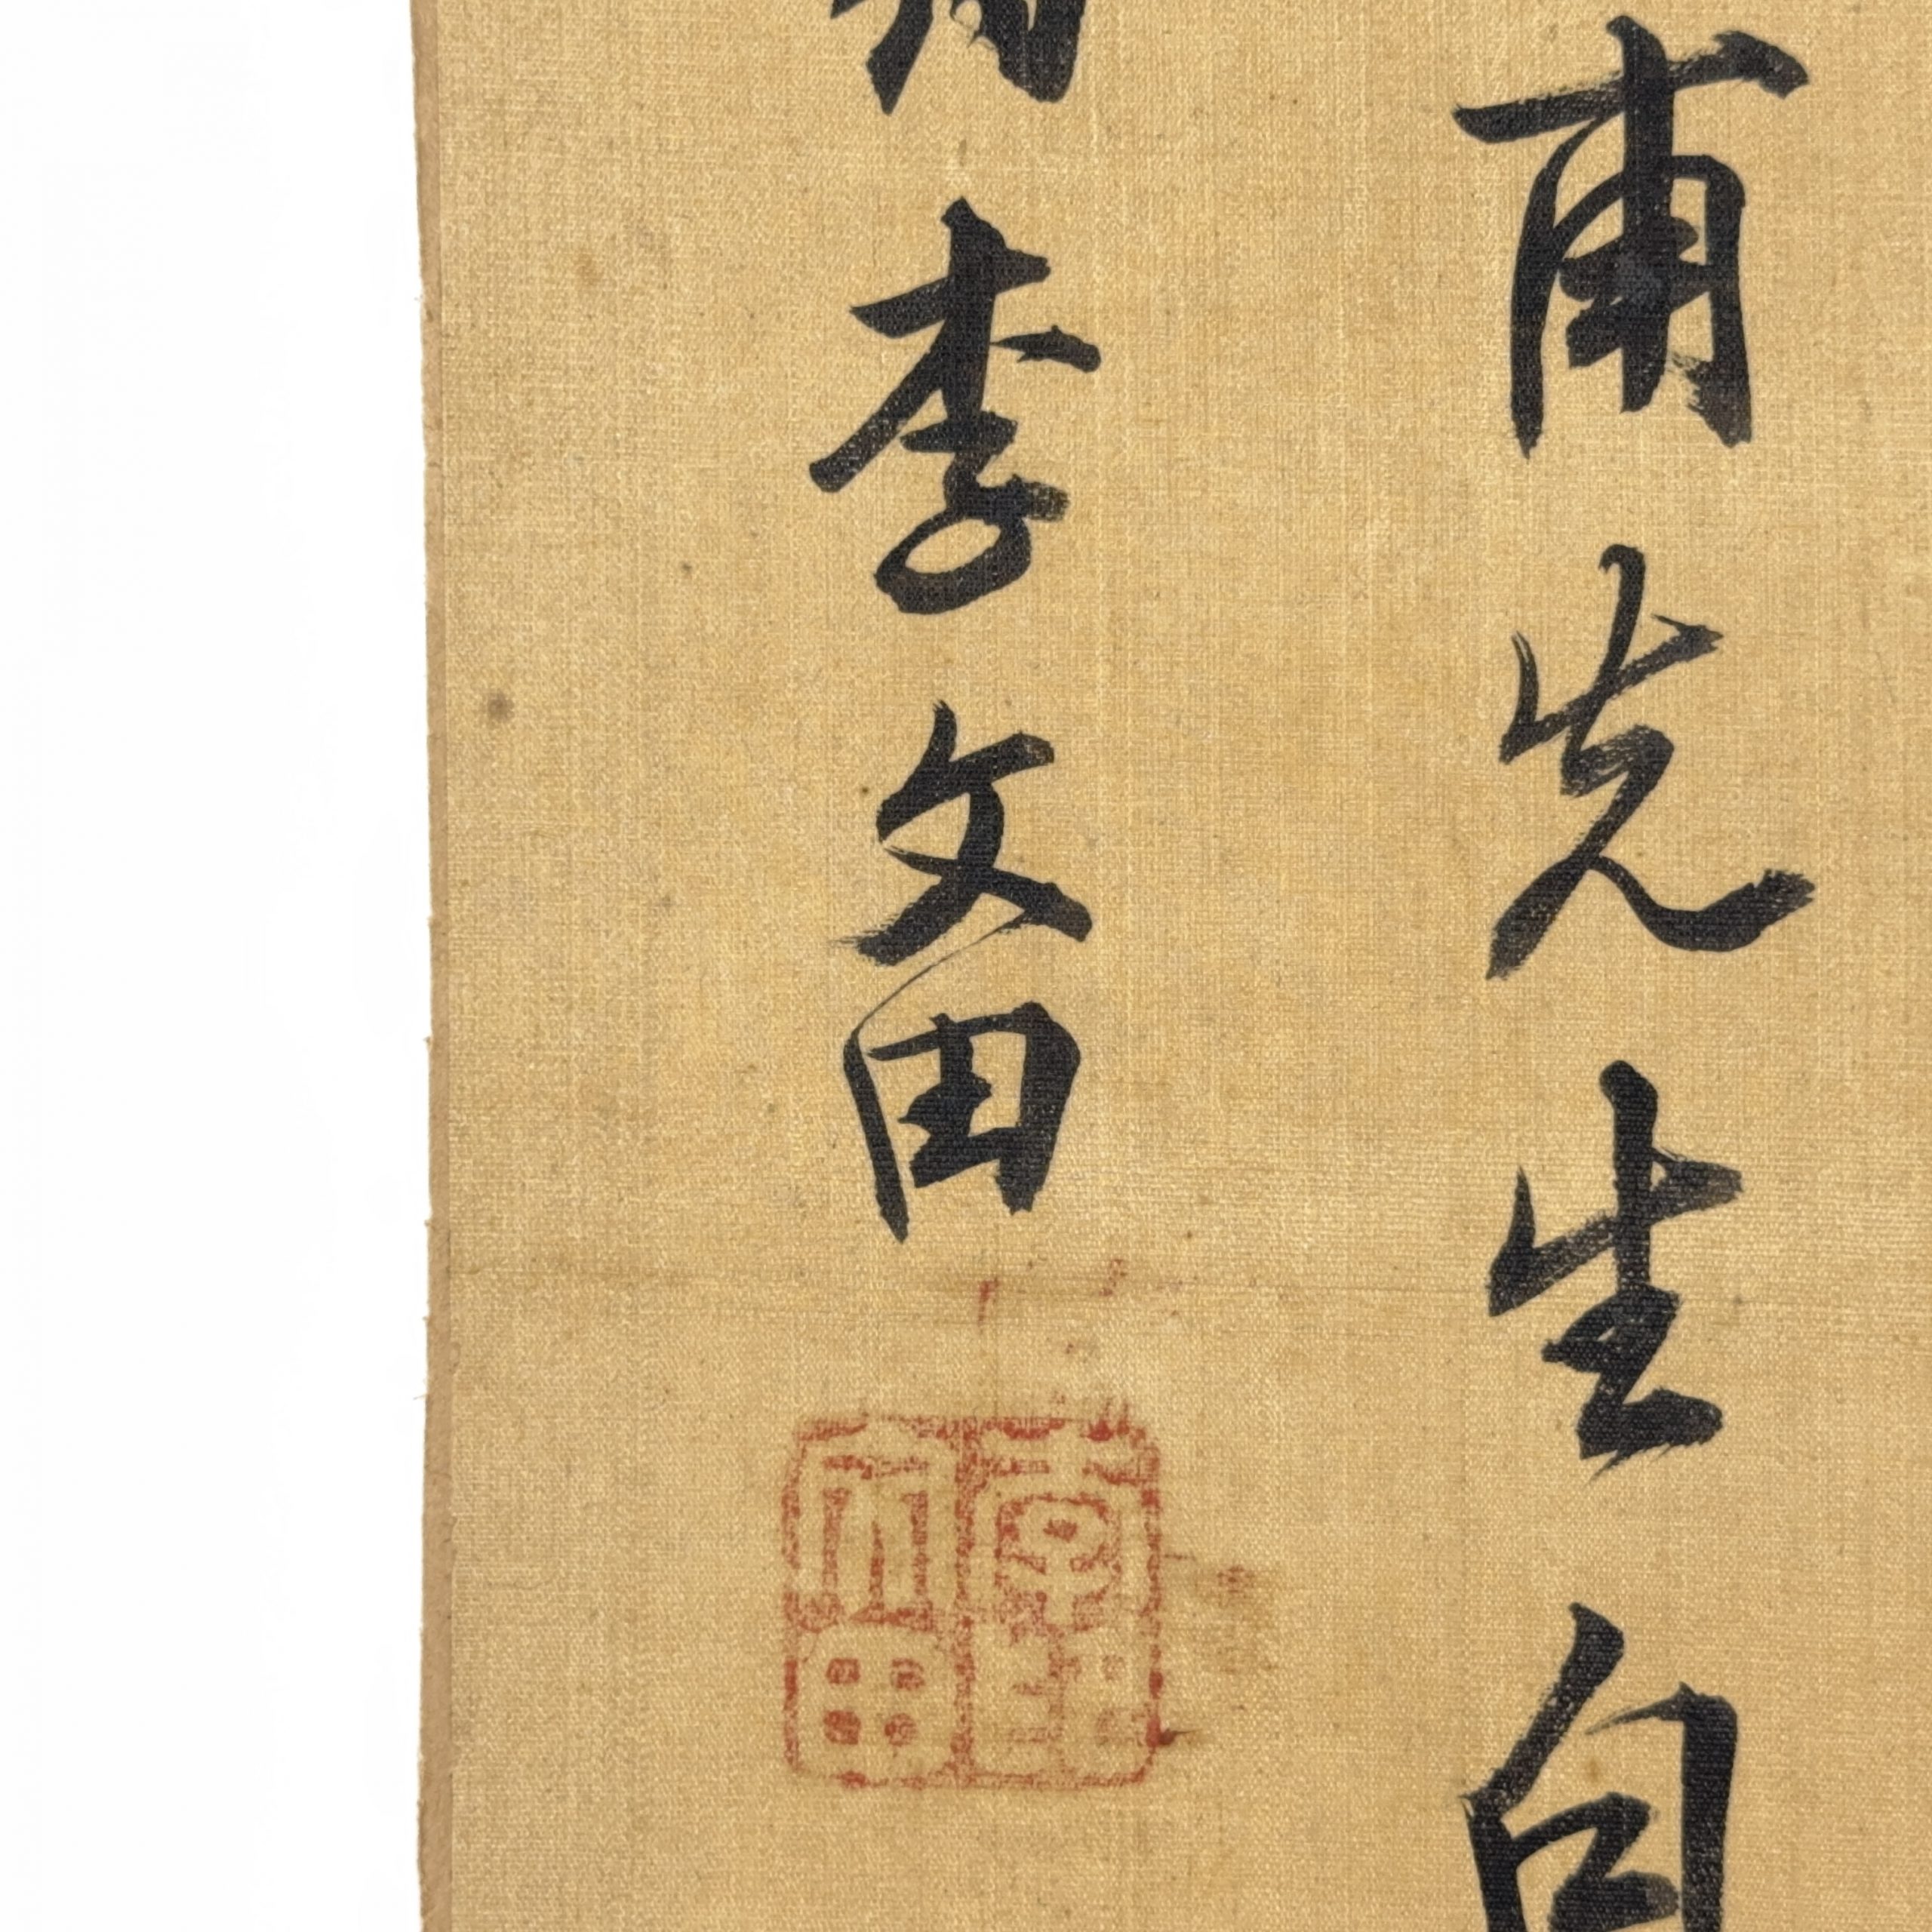 甫先生自
李文田